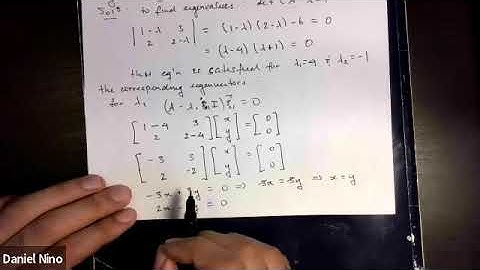 Sol'n: to find eigenvalues
| 1-λ 3 | = (1-λ)(2-λ) - 6 = 0
| 2 2-λ | = (λ-4)(λ+1) = 0
this eq'n is satisfied for λ₁=4 & λ₂=-1
the corresponding eigenvectors
for λ₁ = 0
[ 1-4 3 ] [ x ] = [ 0 ]
[ 2 2-4 ] [ y ] [ 0 ]
[ -3 3 ] [ x ] = [ 0 ]
[ 2 -2 ] [ y ] [ 0 ]
-3x + 3y = 0 ⇒ 3x = 3y ⇒ x = y
2x = 0
Daniel Nino